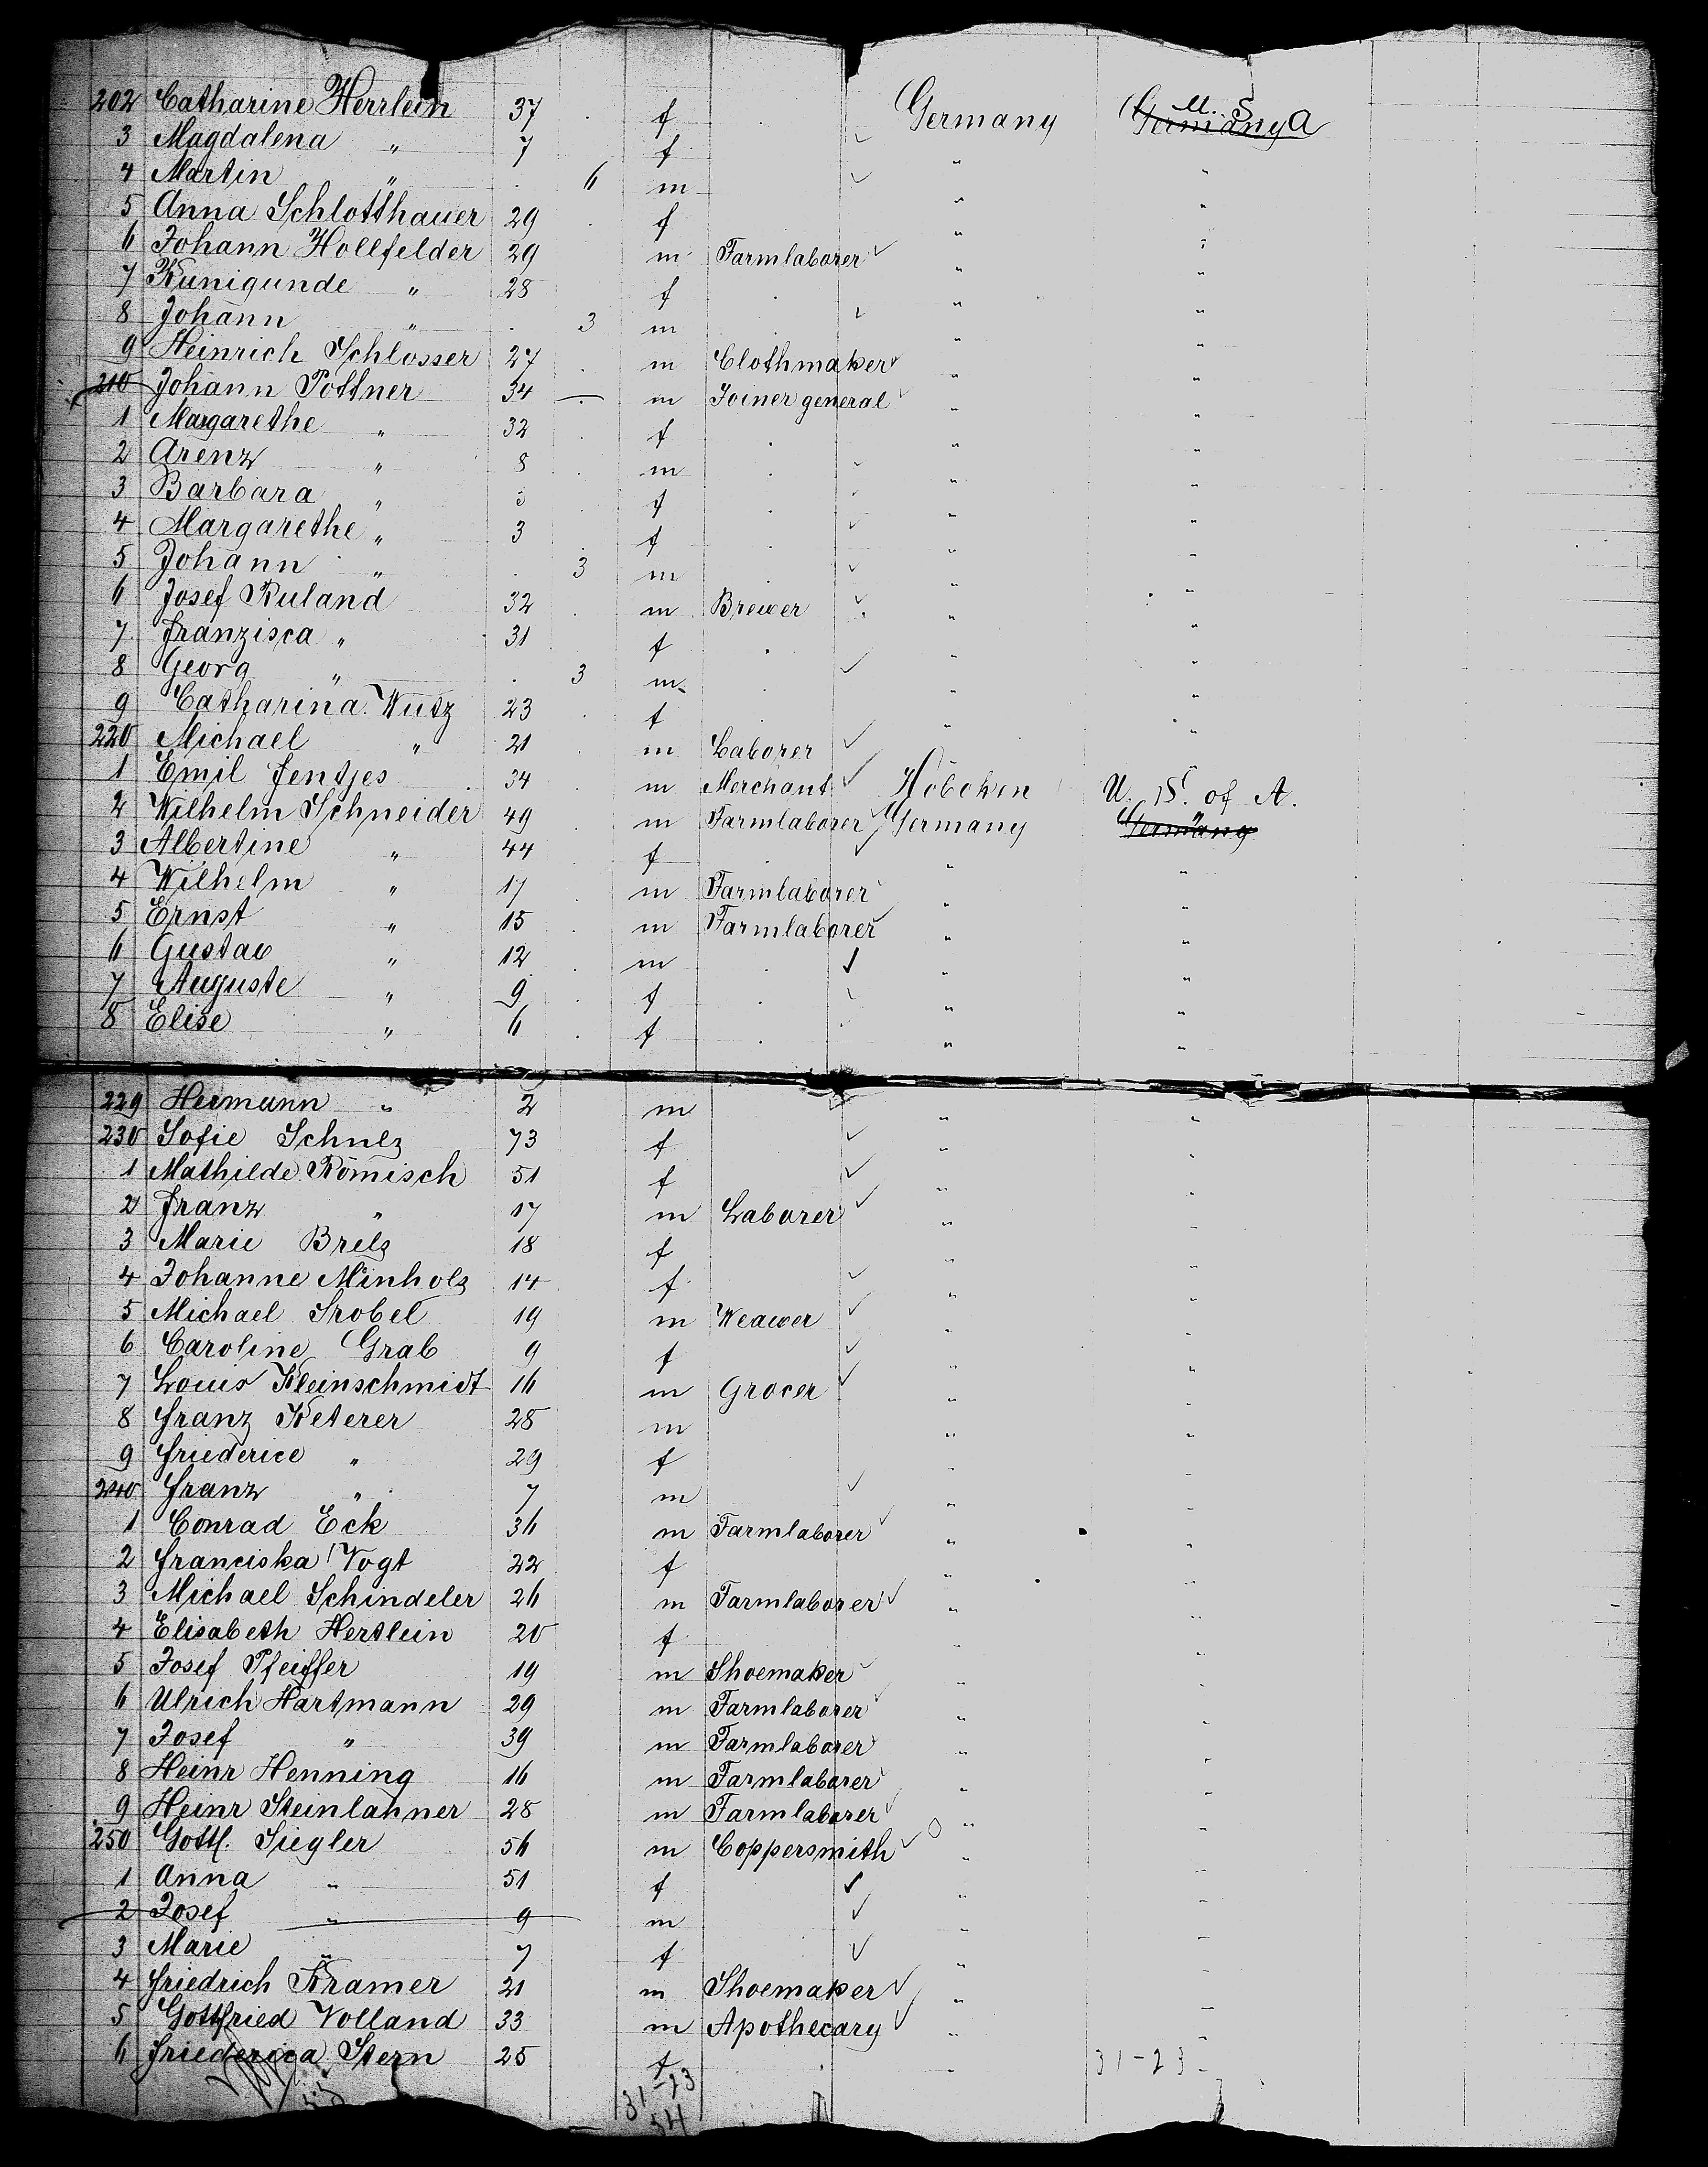 202 Catharine Herrlein 37 f Germany Germany U.S.A
3 Magdalena " 7 f " "
4 Martin " 6 m " "
5 Anna Schlotthauer 29 f " "
6 Johann Hollfelder 29 m Farmlaborer " "
7 Kunigunde " 28 f " "
8 Johann " 3 m " "
9 Heinrich Schlosser 27 m Clothmaker " "
210 Johann Pottner 34 m Joiner general " "
1 Margarethe " 32 f " "
2 Arenz " 8 m " "
3 Barbara " f " "
4 Margarethe " 3 f " "
5 Johann " 3 m " "
6 Josef Ruland 32 m Brewer " "
7 Franzisca " 31 f " "
8 Georg " 3 m " "
9 Catharina Wutz 23 f " "
220 Michael " 21 m Laborer
1 Emil Jentjes 34 m Merchant Hoboken U. S. of A.
2 Wilhelm Schneider 49 m Farmlaborer Germany Germany "
3 Albertine " 44 f " "
4 Wilhelm " 17 m Farmlaborer " "
5 Ernst " 15 m Farmlaborer " "
6 Gustav " 12 m " "
7 Auguste " 9 f " "
8 Elise " 6 f " "
229 Hermann " 2 m " "
230 Sofie Schulz 73 f " "
1 Mathilde Römisch 51 f " "
2 Franz " 17 m Laborer " "
3 Marie Brelz 18 f " "
4 Johanne Minholz 14 f " "
5 Michael Srobel 19 m Weawer " "
6 Caroline Grab 9 f " "
7 Louis Kleinschmidt 16 m Grocer " "
8 Franz Keterer 28 m " "
9 Friederice " 29 f " "
240 Franz " 7 m " "
1 Conrad Eck 36 m Farmlaborer " "
2 Franciska Vogt 22 f " "
3 Michael Schindeler 26 m Farmlaborer " "
4 Elisabeth Hertlein 20 f " "
5 Josef Pfeiffer 19 m Shoemaker " "
6 Ulrich Hartmann 29 m Farmlaborer " "
7 Josef " 39 m Farmlaborer " "
8 Heinr Henning 16 m Farmlaborer " "
9 Heinr Steinlahner 28 m Farmlaborer " "
250 Gottl. Siegler 56 m Coppersmith " "
1 Anna " 51 f " "
2 Josef " 9 m " "
3 Marie " 7 f " "
4 Friedrich Kramer 21 m Shoemaker " "
5 Gottfried Volland 33 m Apothecary " "
6 Friederica Stern 25 f " "
31-23
31-23
54